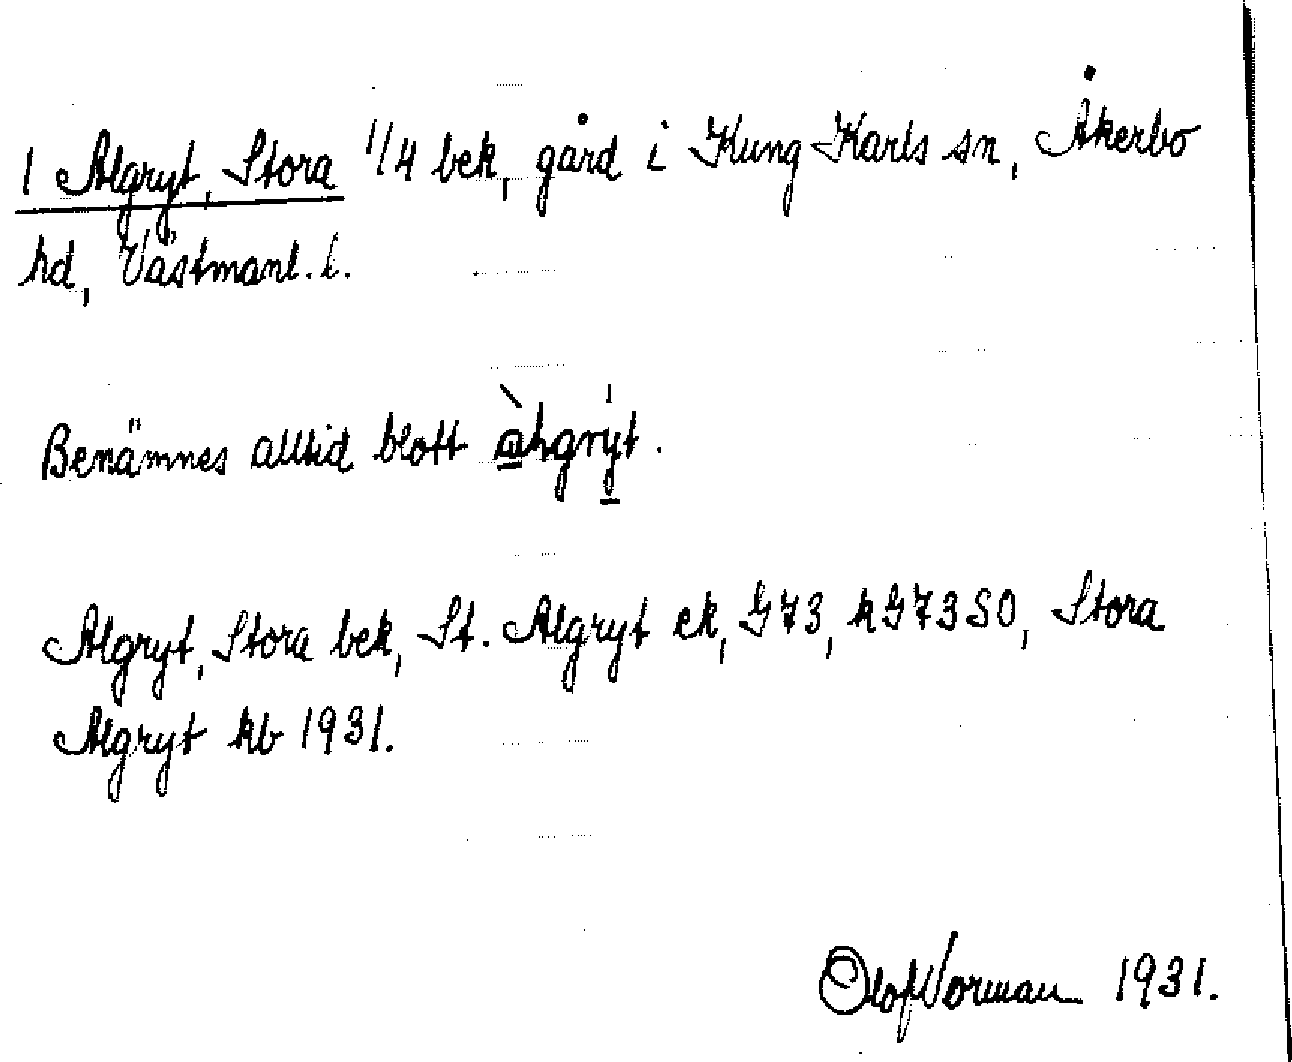 1 Algryt, Stora 1/4 bek, gård i Kung Karls sn, Åkerbo
hd, Västmanl. l.
Benämnes alltid blott àhgrýt.
Algryt, Stora bek, St. Algryt ek, G73, kG73SO, Stora
Algryt kb 1931.
Olof Vorman 1931.